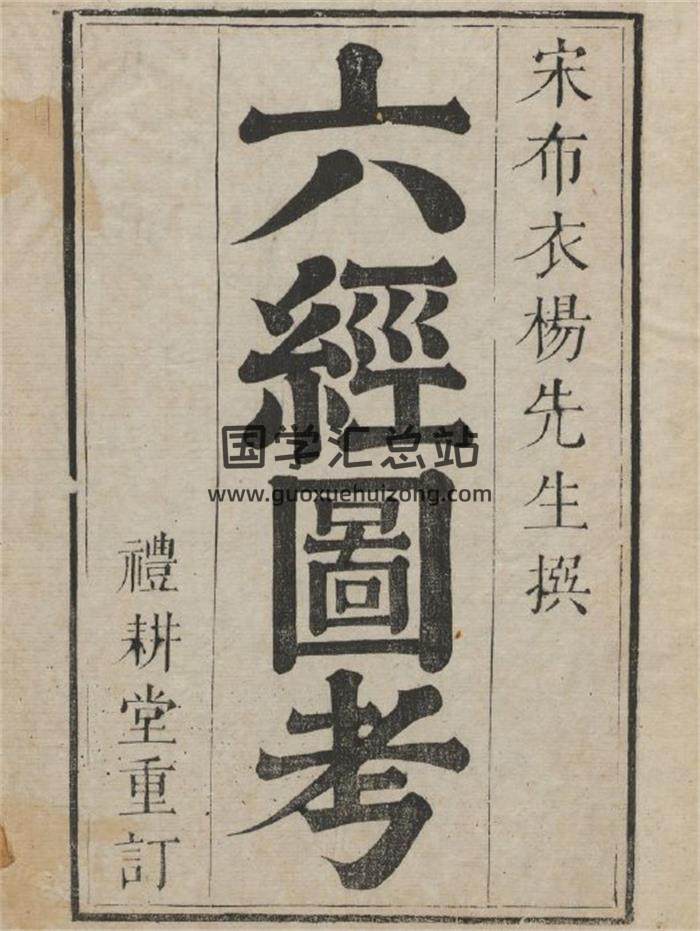 宋布衣楊先生撰
六經圖考
禮耕堂重訂
国学汇总站
www.guoxuehuizong.com